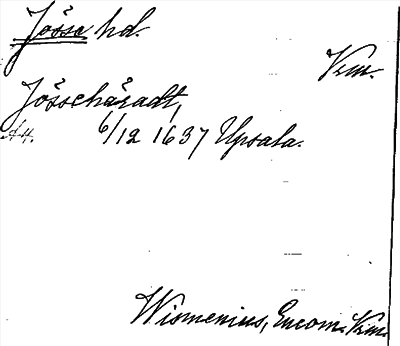 Jösse hd.
Vrm.
Jösschäradt,
6/12 1637 Upsala.
Wismenius, Encom. Vrm.